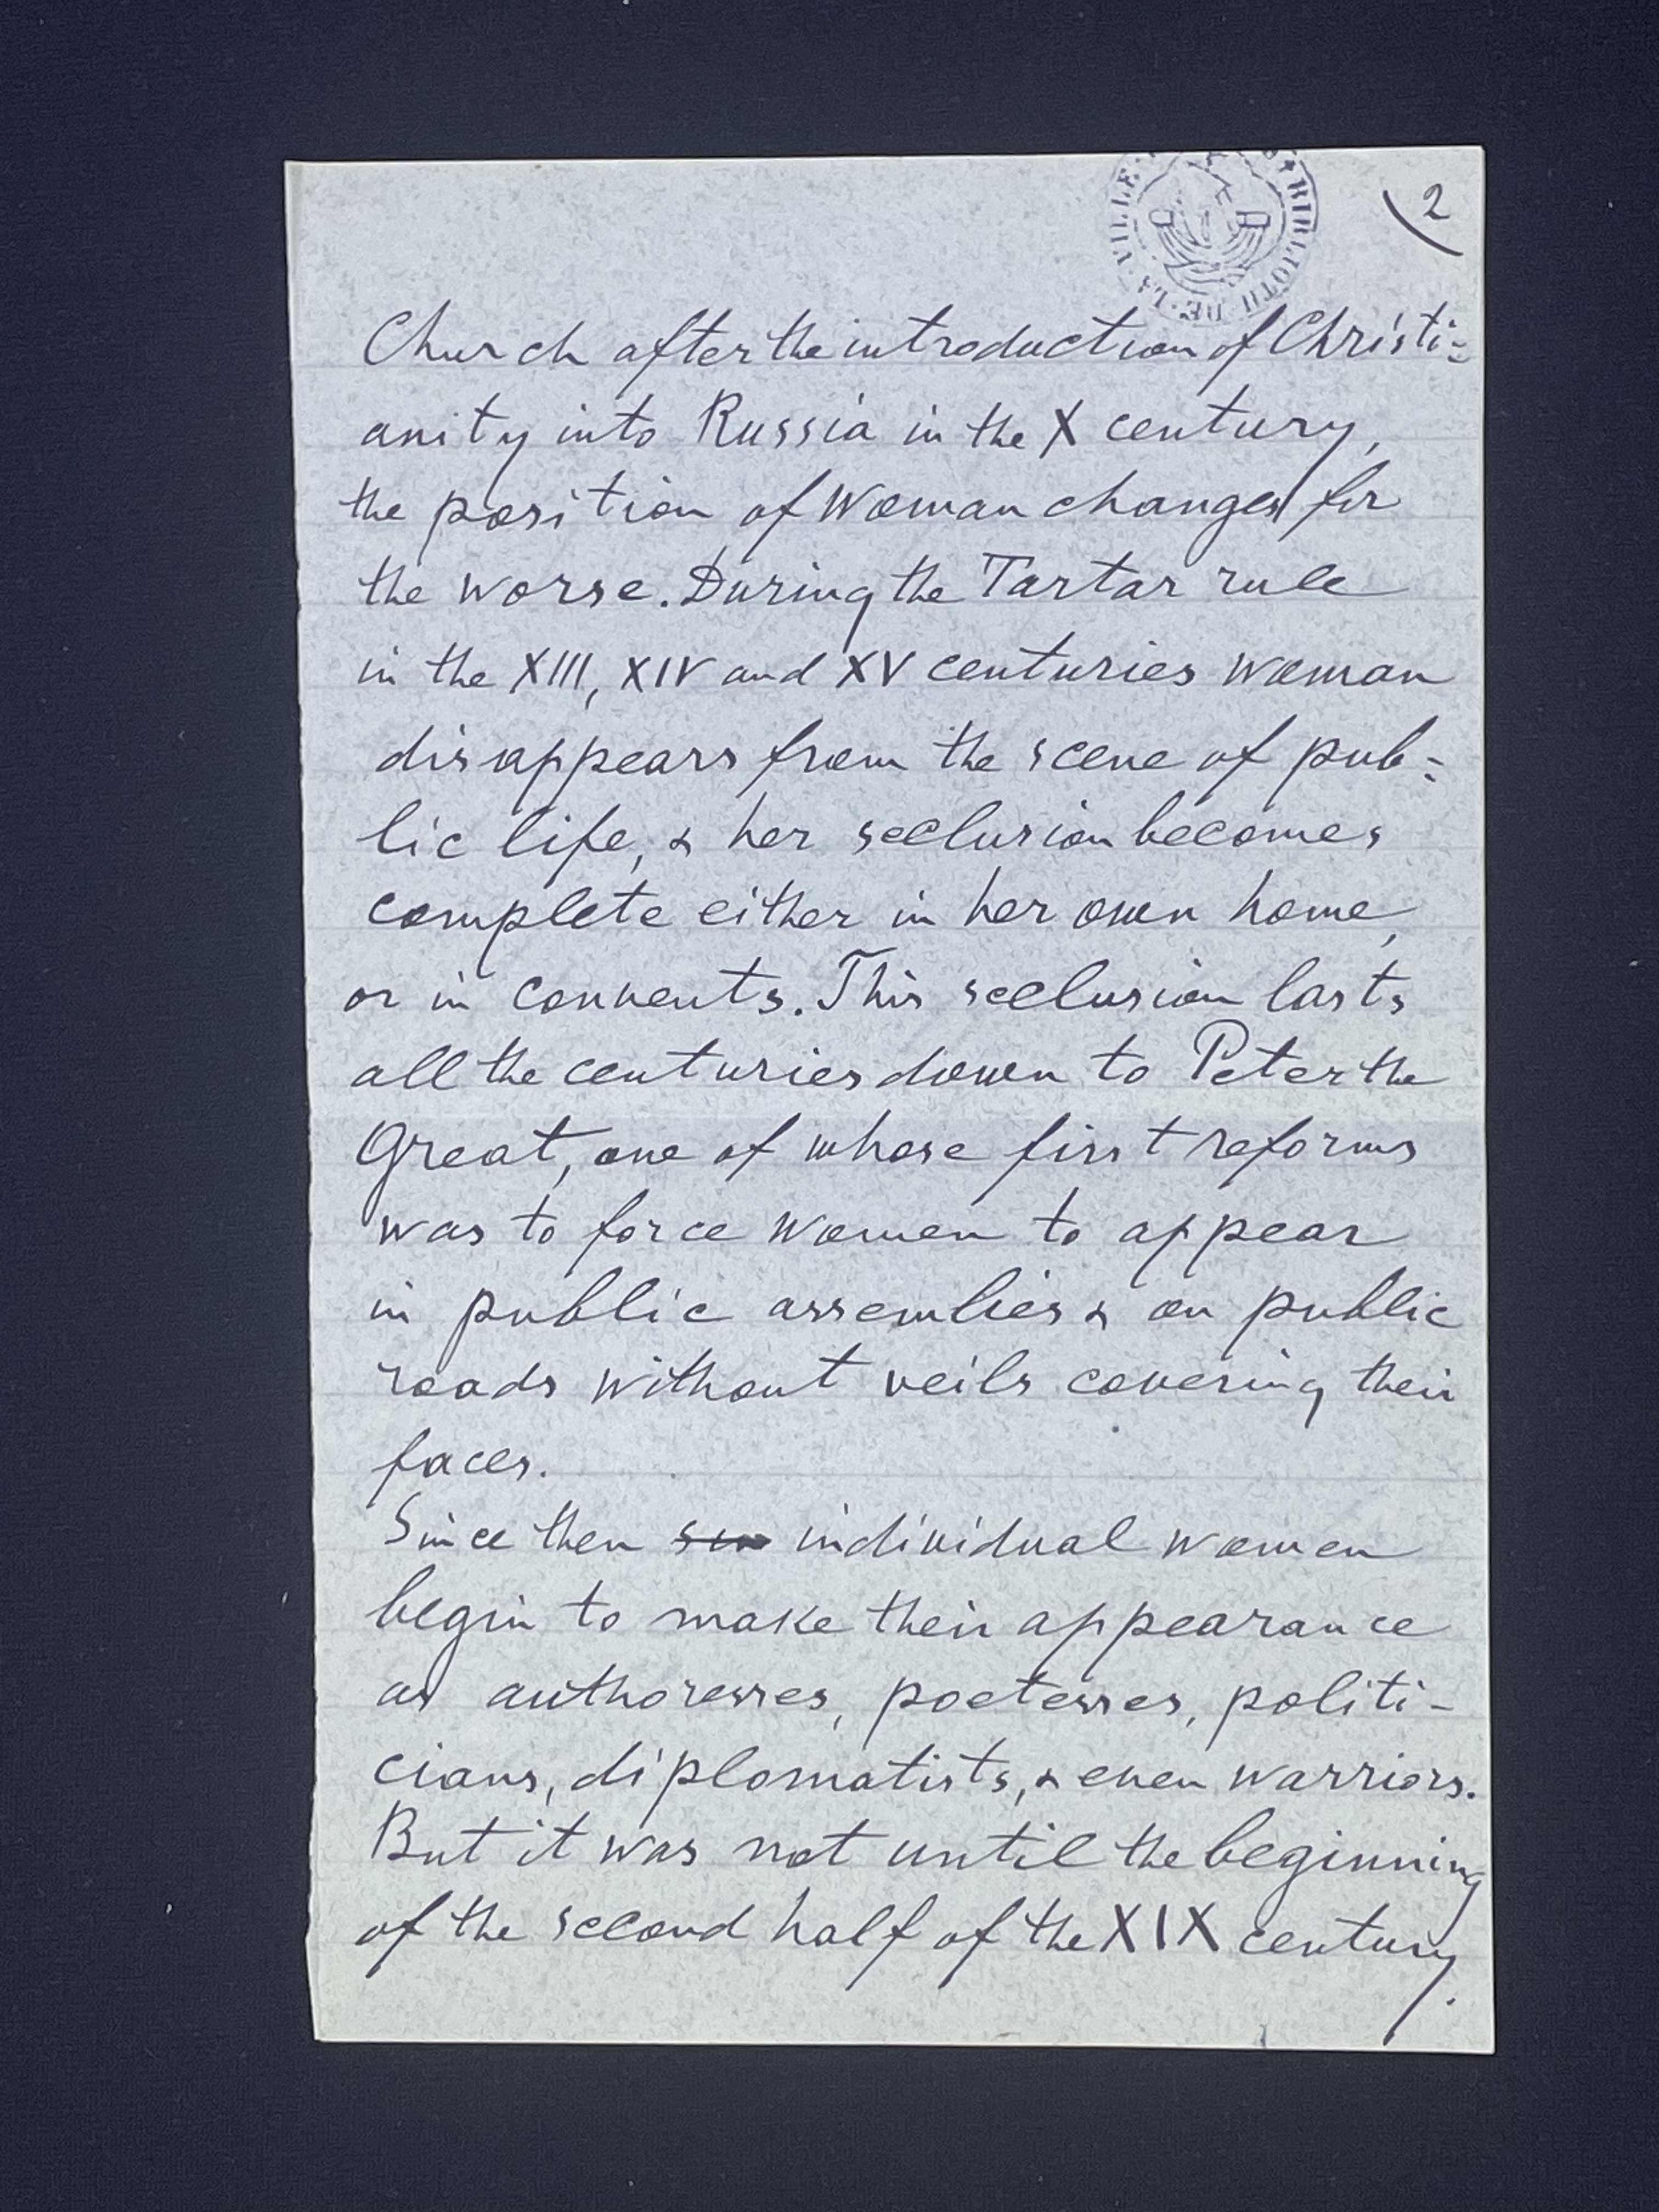 2
VILLE
BIBLIOTH
DE LA
Church after the introduction of Christi=
anity into Russia in the X century,
the position of Woman changes for
the worse. During the Tartar rule
in the XIII, XIV and XV centuries woman
disappears from the scene of pub=
lic life, & her seclusion becomes
complete either in her own home,
or in convents. This seclusion lasts
all the centuries down to Peter the
Great, one of whose first reforms
was to force women to appear
in public assemblies & on public
roads without veils covering their
faces.
Since then individual women
begin to make their appearance
as authoresses, poetesses, politi-
cians, diplomatists, & even warriors.
But it was not until the beginning
of the second half of the XIX century.